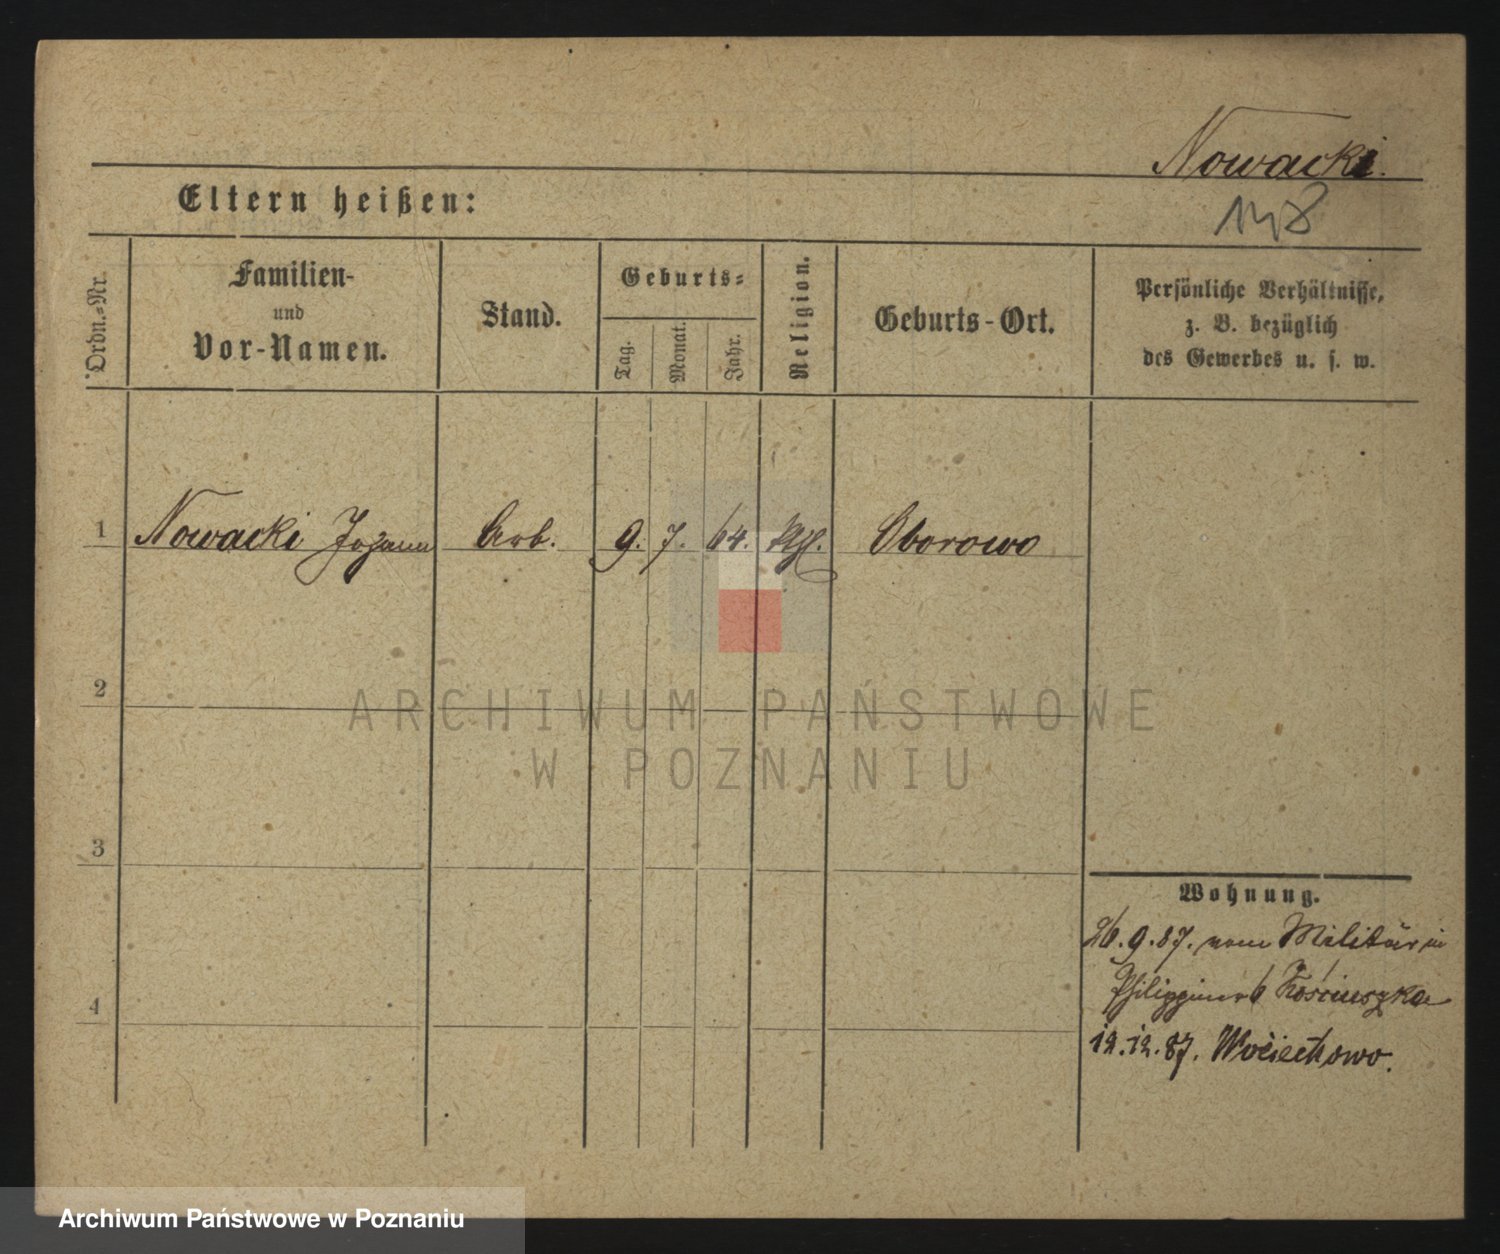 Nowacki.
148
Eltern heißen:
Ordn.-Nr.
Familien-
und
Vor-Namen.
Stand.
Geburts-
Tag.
Monat.
Jahr.
Religion.
Geburts-Ort.
Persönliche Verhältnisse,
z. B. bezüglich
des Gewerbes u. s. w.
1 Nowacki Johann Arb. 9. 7. 64. Oborowo
2
ARCHIWUM PAŃSTWOWE
W POZNANIU
3
4
Wohnung.
26.9.87. vom Militär in
6 Kościuszko
12.12.87. Wociechowo.
Archiwum Państwowe w Poznaniu